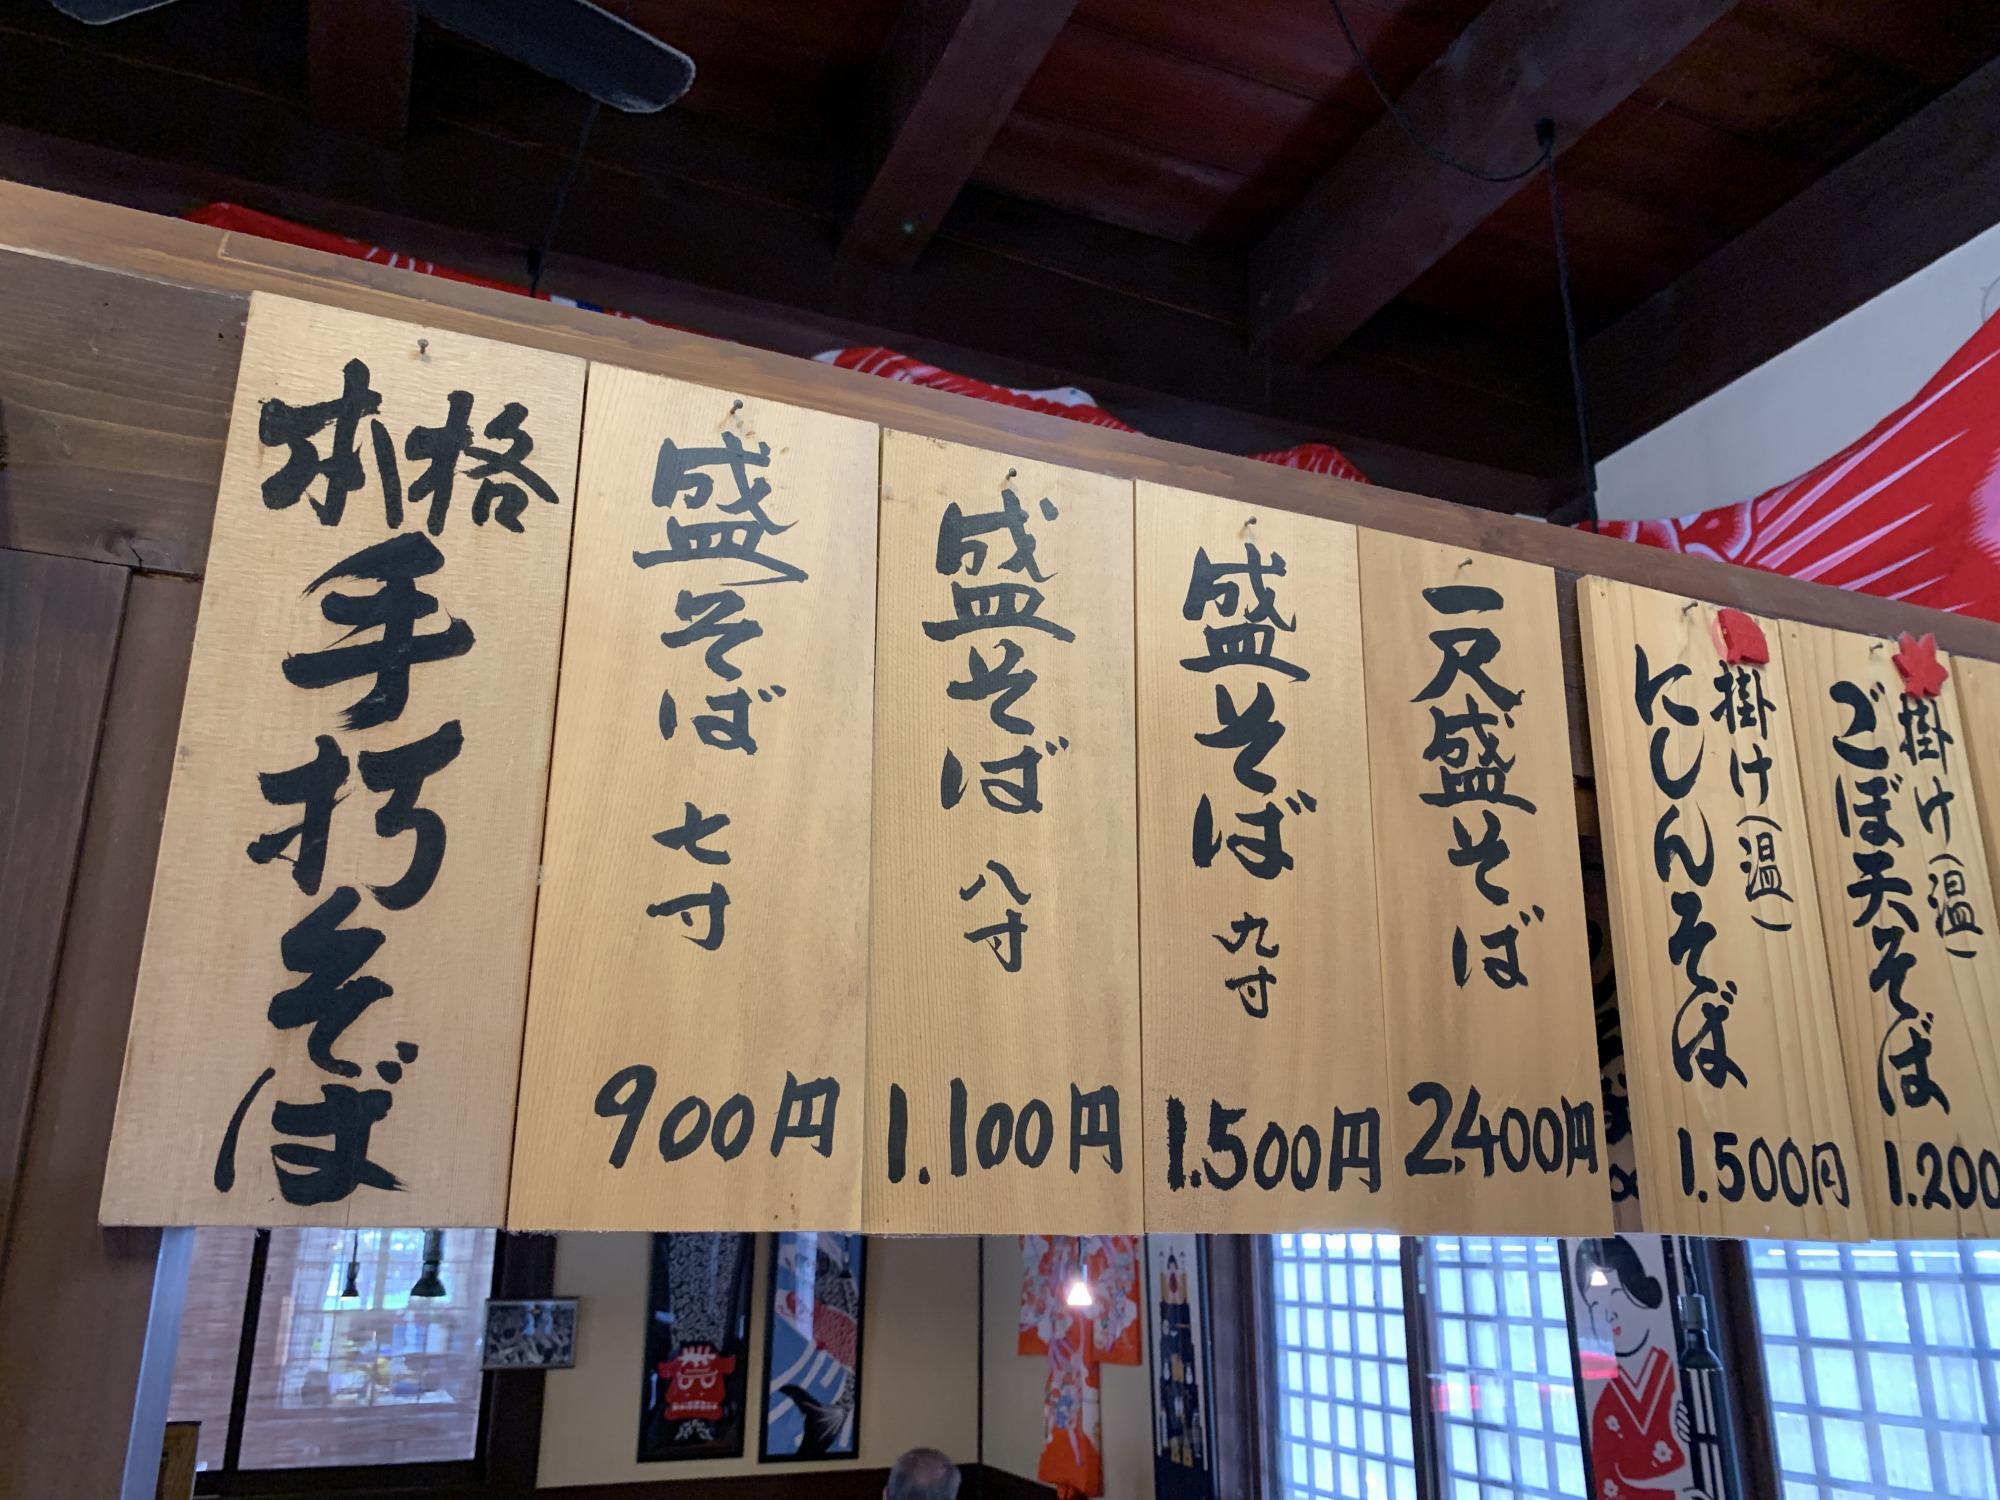 本格
手打そば
盛そば 七寸
900円
盛そば 八寸
1.100円
盛そば 九寸
1.500円
一尺盛そば
2.400円
掛け(温)
にしんそば
1.500円
掛け(温)
ごぼ天そば
1.200